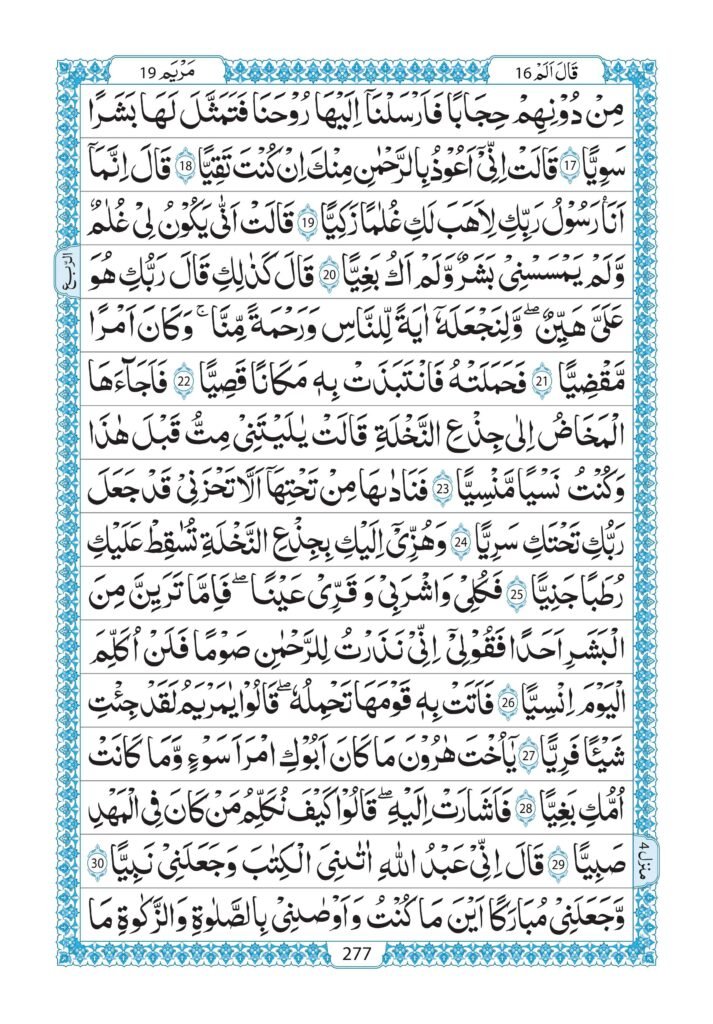 قَالَ اَلَمْ 16
مَرْيَم 19
مِنْ دُوْنِهِمْ حِجَابًا فَاَرْسَلْنَاۤ اِلَيْهَا رُوْحَنَا فَتَمَثَّلَ لَهَا بَشَرًا
سَوِيًّا 17 قَالَتْ اِنِّيْۤ اَعُوْذُ بِالرَّحْمٰنِ مِنْكَ اِنْ كُنْتَ تَقِيًّا 18 قَالَ اِنَّمَاۤ
اَنَا رَسُوْلُ رَبِّكِ لِاَهَبَ لَكِ غُلٰمًا زَكِيًّا 19 قَالَتْ اَنّٰى يَكُوْنُ لِيْ غُلٰمٌ
وَّلَمْ يَمْسَسْنِيْ بَشَرٌ وَّلَمْ اَكُ بَغِيًّا 20 قَالَ كَذٰلِكِ قَالَ رَبُّكِ هُوَ
الربع
عَلَيَّ هَيِّنٌ ۖ وَلِنَجْعَلَهٗۤ اٰيَةً لِّلنَّاسِ وَرَحْمَةً مِّنَّا ۚ وَكَانَ اَمْرًا
مَّقْضِيًّا 21 فَحَمَلَتْهُ فَانْتَبَذَتْ بِهٖ مَكَانًا قَصِيًّا 22 فَاَجَآءَهَا
الْمَخَاضُ اِلٰى جِذْعِ النَّخْلَةِ قَالَتْ يٰلَيْتَنِيْ مِتُّ قَبْلَ هٰذَا
وَكُنْتُ نَسْيًا مَّنْسِيًّا 23 فَنَادٰىهَا مِنْ تَحْتِهَاۤ اَلَّا تَحْزَنِيْ قَدْ جَعَلَ
رَبُّكِ تَحْتَكِ سَرِيًّا 24 وَهُزِّيْۤ اِلَيْكِ بِجِذْعِ النَّخْلَةِ تُسٰقِطْ عَلَيْكِ
رُطَبًا جَنِيًّا 25 فَكُلِيْ وَاشْرَبِيْ وَقَرِّيْ عَيْنًا ۖ فَاِمَّا تَرَيِنَّ مِنَ
الْبَشَرِ اَحَدًا فَقُوْلِيْۤ اِنِّيْ نَذَرْتُ لِلرَّحْمٰنِ صَوْمًا فَلَنْ اُكَلِّمَ
الْيَوْمَ اِنْسِيًّا 26 فَاَتَتْ بِهٖ قَوْمَهَا تَحْمِلُهٗ ۖ قَالُوْا يٰمَرْيَمُ لَقَدْ جِئْتِ
شَيْئًا فَرِيًّا 27 يٰۤاُخْتَ هٰرُوْنَ مَا كَانَ اَبُوْكِ امْرَاَ سَوْءٍ وَّمَا كَانَتْ
اُمُّكِ بَغِيًّا 28 فَاَشَارَتْ اِلَيْهِ ۖ قَالُوْا كَيْفَ نُكَلِّمُ مَنْ كَانَ فِي الْمَهْدِ
صَبِيًّا 29 قَالَ اِنِّيْ عَبْدُ اللّٰهِ اٰتٰىنِيَ الْكِتٰبَ وَجَعَلَنِيْ نَبِيًّا 30
منزل 4
وَّجَعَلَنِيْ مُبَارَكًا اَيْنَ مَا كُنْتُ وَاَوْصٰنِيْ بِالصَّلٰوةِ وَالزَّكٰوةِ مَا
277